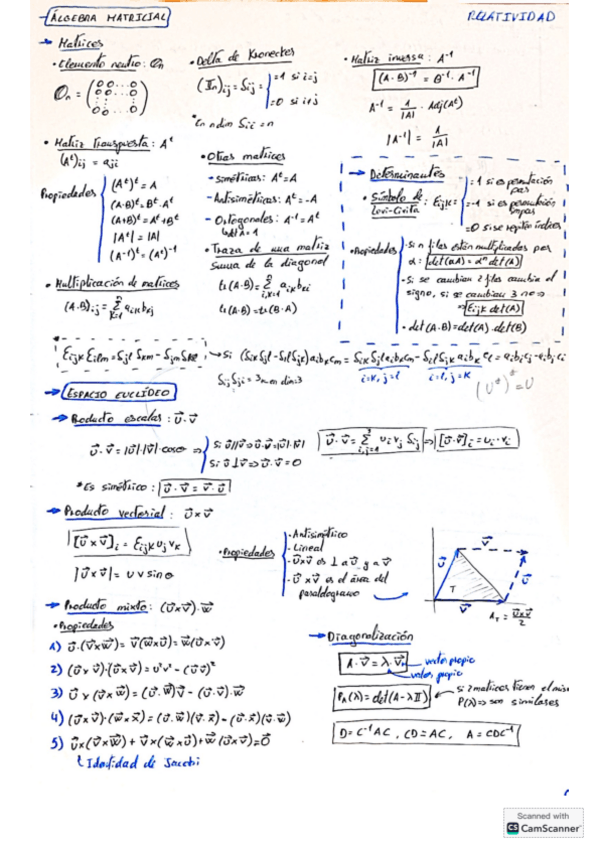 ÁLGEBRA MATRICIAL
RELATIVIDAD
→ Matrices
• Elemento neutro: 𝕆n
𝕆n = (0 0 ... 0
0 0 ... 0
0 0 ... 0)
• Delta de Kronecker
(𝕀n)ij = δij = { =1 si i=j
=0 si i≠j
*En n dim δii = n
• Matriz inversa: A⁻¹
(A·B)⁻¹ = B⁻¹·A⁻¹
A⁻¹ = 1/|A| · Adj(Aᵗ)
|A⁻¹| = 1/|A|
• Matriz transpuesta: Aᵗ
(Aᵗ)ij = aji
Propiedades
(Aᵗ)ᵗ = A
(A·B)ᵗ = Bᵗ·Aᵗ
(A+B)ᵗ = Aᵗ+Bᵗ
|Aᵗ| = |A|
(A⁻¹)ᵗ = (Aᵗ)⁻¹
• Multiplicación de matrices
(A·B)ij = Σ aik bkj
• Otras matrices
- Simétricas: Aᵗ=A
- Antisimétricas: Aᵗ=-A
- Ortogonales: A⁻¹=Aᵗ
• Traza de una matriz
Suma de la diagonal
tr(A·B) = Σ aik bki
tr(A·B) = tr(B·A)
→ Determinantes
• Símbolo de Levi-Civita: Eijk = { =1 si es permutación par
=-1 si es permutación impar
=0 si se repiten índices
• Propiedades
- Si n filas están multiplicadas por
α: det(αA) = αⁿ det(A)
- Si se cambian 2 filas cambia el
signo, si se cambian 3 no ⇒
⇒ Eijk det(A)
• det(A·B) = det(A)·det(B)
Eijk Eilm = δjl δkm - δjm δkl
δij δji = 3 en dim 3
ESPACIO EUCLÍDEO
→ Producto escalar: u⃗·v⃗
u⃗·v⃗ = |u⃗|·|v⃗|·cosθ ⇒ { Si u⃗∥v⃗ ⇒ u⃗·v⃗ = |u⃗|·|v⃗|
Si u⃗⊥v⃗ ⇒ u⃗·v⃗ = 0
u⃗·v⃗ = Σ ui vj δij ⇒ [u⃗·v⃗]i = ui·vi
*Es simétrico: u⃗·v⃗ = v⃗·u⃗
→ Producto vectorial: u⃗×v⃗
[u⃗×v⃗]i = Eijk uj vk
|u⃗×v⃗| = u v sinθ
• Propiedades
- Antisimétrico
- Lineal
- u⃗×v⃗ es ⊥ a u⃗ y a v⃗
- u⃗×v⃗ es el área del
paralelogramo
v⃗
u⃗
T
u⃗
v⃗
A_T = u⃗×v⃗/2
→ Producto mixto: (u⃗×v⃗)·w⃗
• Propiedades
1) u⃗·(v⃗×w⃗) = v⃗(w⃗×u⃗) = w⃗(u⃗×v⃗)
2) (u⃗×v⃗)·(u⃗×v⃗) = u²v² - (u⃗·v⃗)²
3) u⃗×(v⃗×w⃗) = (u⃗·w⃗)v⃗ - (u⃗·v⃗)·w⃗
4) (u⃗×v⃗)·(w⃗×x⃗) = (u⃗·w⃗)(v⃗·x⃗) - (u⃗·x⃗)(v⃗·w⃗)
5) u⃗×(v⃗×w⃗) + v⃗×(w⃗×u⃗) + w⃗(u⃗×v⃗) = 0⃗
Identidad de Jacobi
→ Diagonalización
A·v⃗ = λ·v⃗
vector propio
valor propio
P_A(λ) = det(A-λ𝕀)
si 2 matrices tienen el mis
P(λ) ⇒ son similares
D = C⁻¹AC, CD = AC, A = CDC⁻¹
Scanned with
CS CamScanner